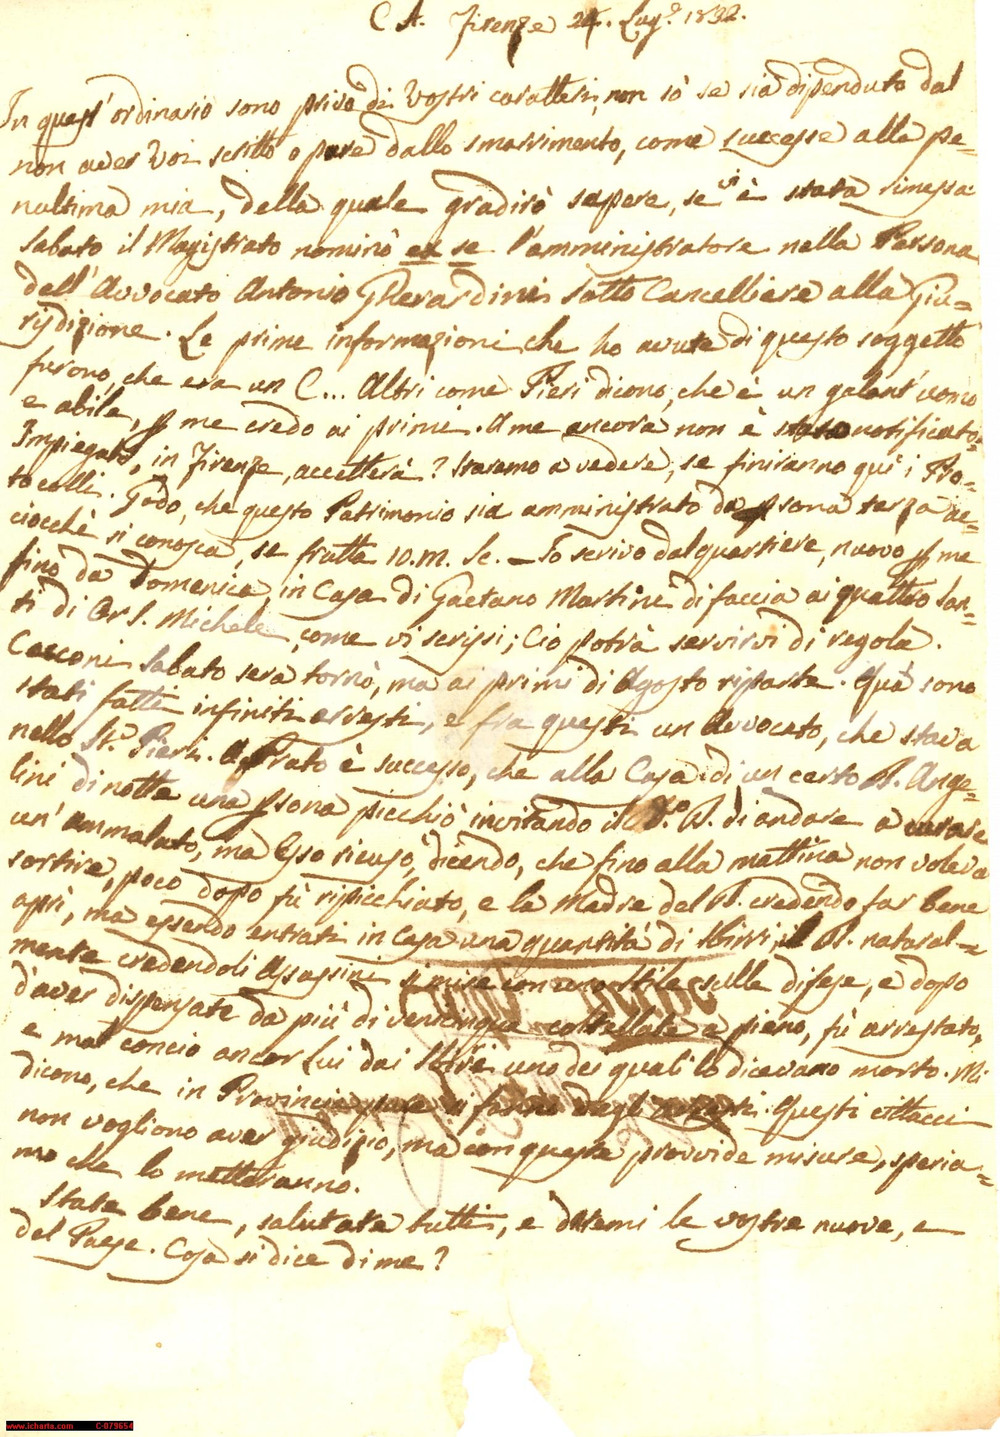 C. A. Firenze 24. Lug.º 1832.
In quest'ordinario sono privo di Vostri caratteri, non sò se sia dipenduto dal
non aver Voi scritto o pure dallo smarrimento, come successe alla pe=
nultima mia, della quale gradirò sapere, se vi è stata rimessa.
Sabato il Magistrato nominò ex se l'amministratore nella Persona
dell'Avvocato Antonio Gherardini Sotto Cancelliere alla Giu=
risdizione. Le prime informazioni che ho avute di questo soggetto
furono, che era un C... Altri come Pieri dicono, che è un galant'uomo
e abile, p me credo ai primi. A me ancora non è stato notificato.
Impiegato, in Firenze, accetterà? Staremo a vedere, se finiranno quì i Pro=
tocolli. Godo, che questo Patrimonio sia amministrato da psona terza ac=
ciocchè si conosca, se frutta 10.m. Sc. - Io scrivo dal quartiere, nuovo p me
fino da Domenica, in Casa di Gaetano Martini di faccia ai quattro San=
ti di Or S. Michele, come vi scrissi; Ciò potrà servirvi di regola.
Cecconi Sabato sera tornò, ma ai primi di Agosto riparte. Quà sono
stati fatti infiniti arresti, e fra questi un Avvocato, che stava
nello St.º Pieri. A Prato è successo, che alla Casa di un certo D. Ange=
lini di notte una psona picchiò invitando il D.º D. di andare a curare
un'ammalato, ma Esso ricusò, dicendo, che fino alla mattina non voleva
sortire, poco dopo fù ripicchiato, e la Madre del D. credendo far bene
aprì, ma essendo entrati in casa una quantità di Sbirri, il D. natural=
mente credendoli Assassini si mise con uno stile sulla difese, e dopo
d'aver dispensate da più di venticinque coltellate a pieno, fù arrestato,
e mal concio ancor Lui dai Sbirri uno dei quali lo dicevano morto. Mi
dicono, che in Provincia pure si fanno degli arresti. Questi villacci
non vogliono aver giudizio, ma con queste provvide misure, speria=
mo che lo metteranno.
State bene, salutate tutti, e datemi le vostre nuove, e
del Paese. Cosa si dice di me?
www.icharta.com C-079654